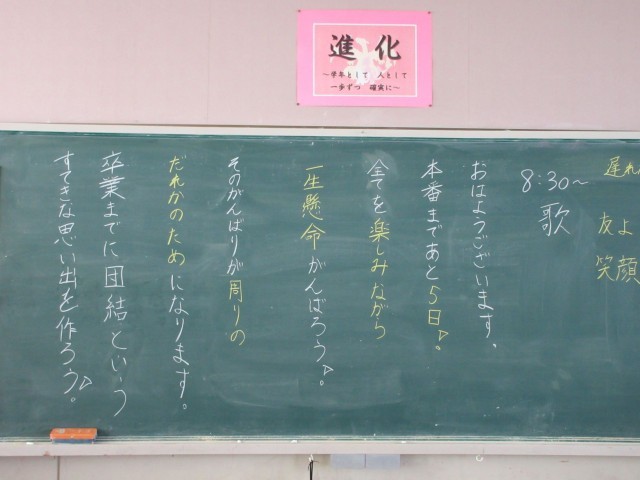 進化
〜学年として 人として
一歩ずつ 確実に〜
遅れ
友よ
笑顔
8:30〜
歌
おはようございます。
本番まであと5日。
全てを楽しみながら
一生懸命がんばろう。
そのがんばりが周りの
だれかのためになります。
卒業までに団結という
すてきな思い出を作ろう。